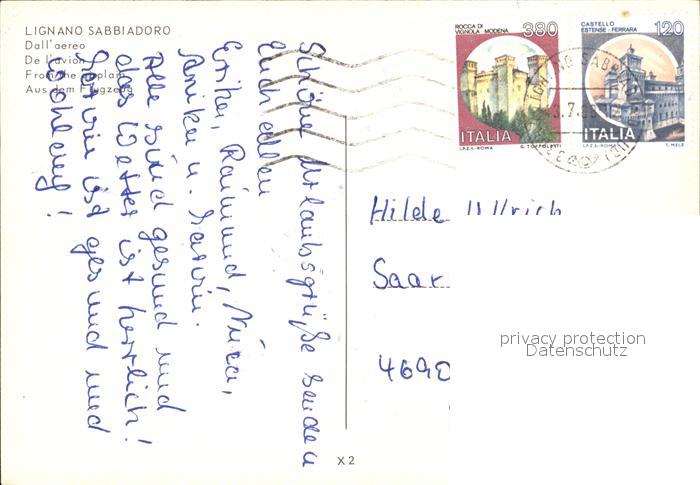 LIGNANO SABBIADORO
Dall'aereo
De l'avion
From the
Aus dem Flugzeug
Schöne Urlaubsgrüße senden
Euch allen
Erika, Raimund,
Anika u.
Alle sind gesund und
das Wetter ist herrlich!
ist gesund und
wohlauf!
X 2
ROCCA DI
VIGNOLA MODENA
380
ITALIA
I.P.Z.S.-ROMA
CASTELLO
ESTENSE-FERRARA
120
ITALIA
I.P.Z.S.-ROMA
T. MELE
Hilde Ullrich
Saar
4690
privacy protection
Datenschutz